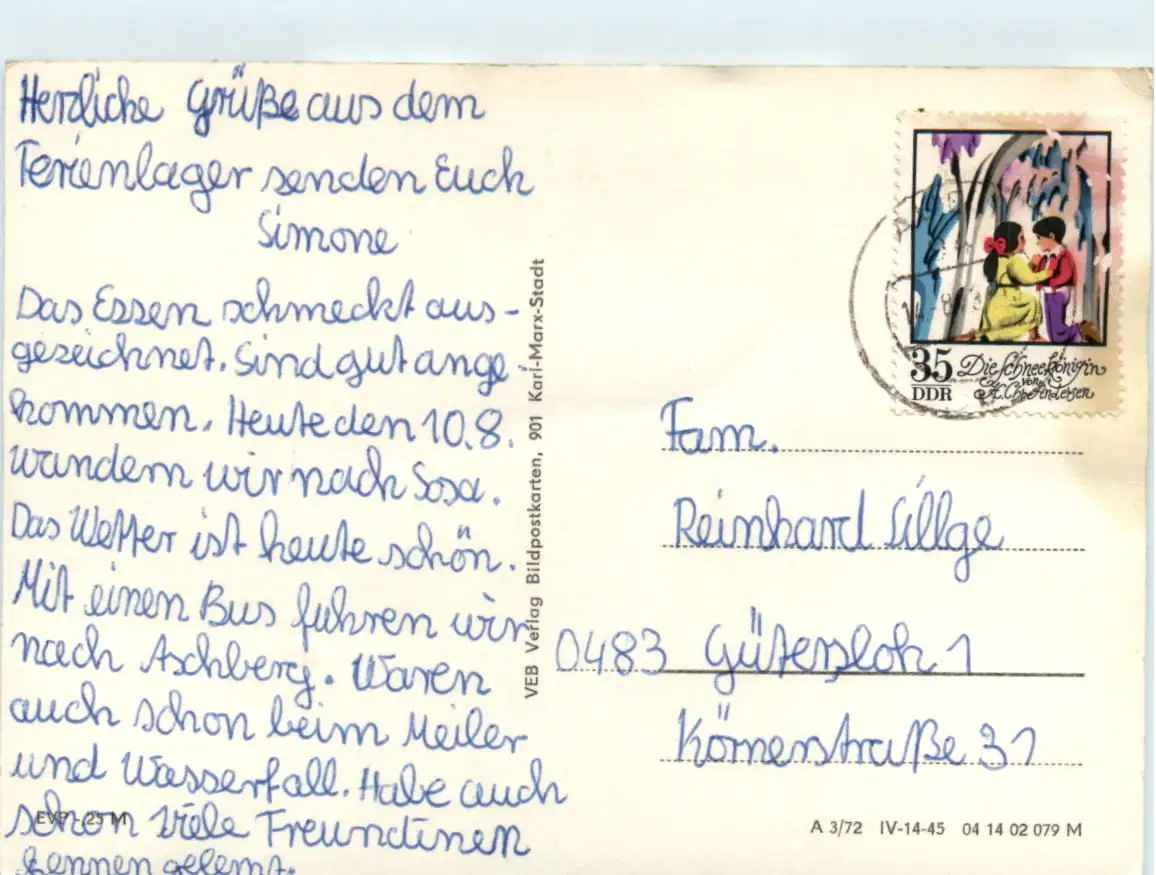 Herzliche Grüße aus dem
Ferienlager senden Euch
Simone
Das Essen schmeckt aus-
gezeichnet. Sind gut ange-
kommen. Heute den 10.8.
wandern wir nach Sosa.
Das Wetter ist heute schön.
Mit einen Bus fuhren wir
nach Aschberg. Waren
auch schon beim Meiler
und Wasserfall. Habe auch
schon viele Freundinen
kennen gelernt.
EVP -,25 M
VEB Verlag Bildpostkarten, 901 Karl-Marx-Stadt
35
DDR
Die Schneekönigin
von
H. Chr. Andersen
Fam.
Reinhard Lillge
0483 Gütersloh 1
Körnerstraße 31
A 3/72 IV-14-45 04 14 02 079 M